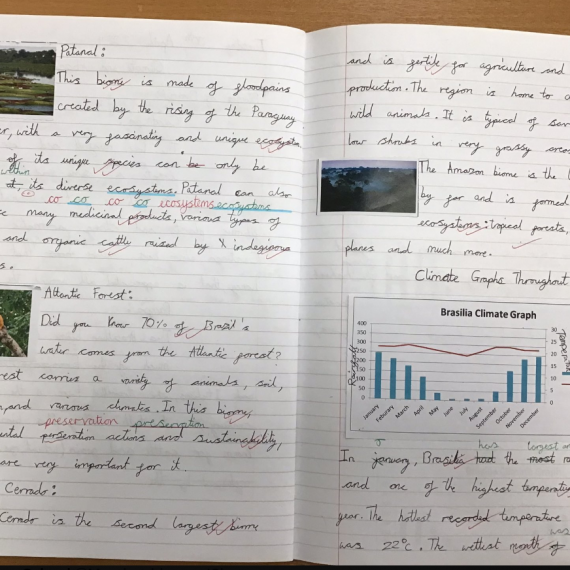 Patanal:
This biome is made of floodpains
created by the rising of the Paraguay
er, with a very fascinating and unique ecosystem
of its unique species can be only be
within
at its diverse ecosystems. Patanal can also
co co co co ecosystems ecosystems
many medicinal products, various types of
and organic cattle raised by indeginous
s.
Atlantic Forest:
Did you know 70% of Brasil's
water comes from the Atlantic forest?
rest carrus a varity of animals, soil,
and various climates. In this biome,
preservation preservation
ental perseration actions and sustainability,
are very important for it.
Cerrado:
Cerrado is the second largest biome
and is fertile for agriculture and
production. The region is home to a
wild animals. It is typical of sav
low shrubs in very grassy area
The Amazon biome is the l
by far and is formed
ecosystems: tropical forests,
planes and much more.
Climate Graphs Throughout
Brasilia Climate Graph
400
350
300
250
200
150
100
50
0
30
25
20
15
10
5
0
Rainfall
January
Feburary
March
April
May
June
July
August
September
October
November
December
J has largest
In january, Brasilia had the most ra
and one of the highest temperatu
year. The hottest recorded temperature
was
was 22°c. The wettest month of